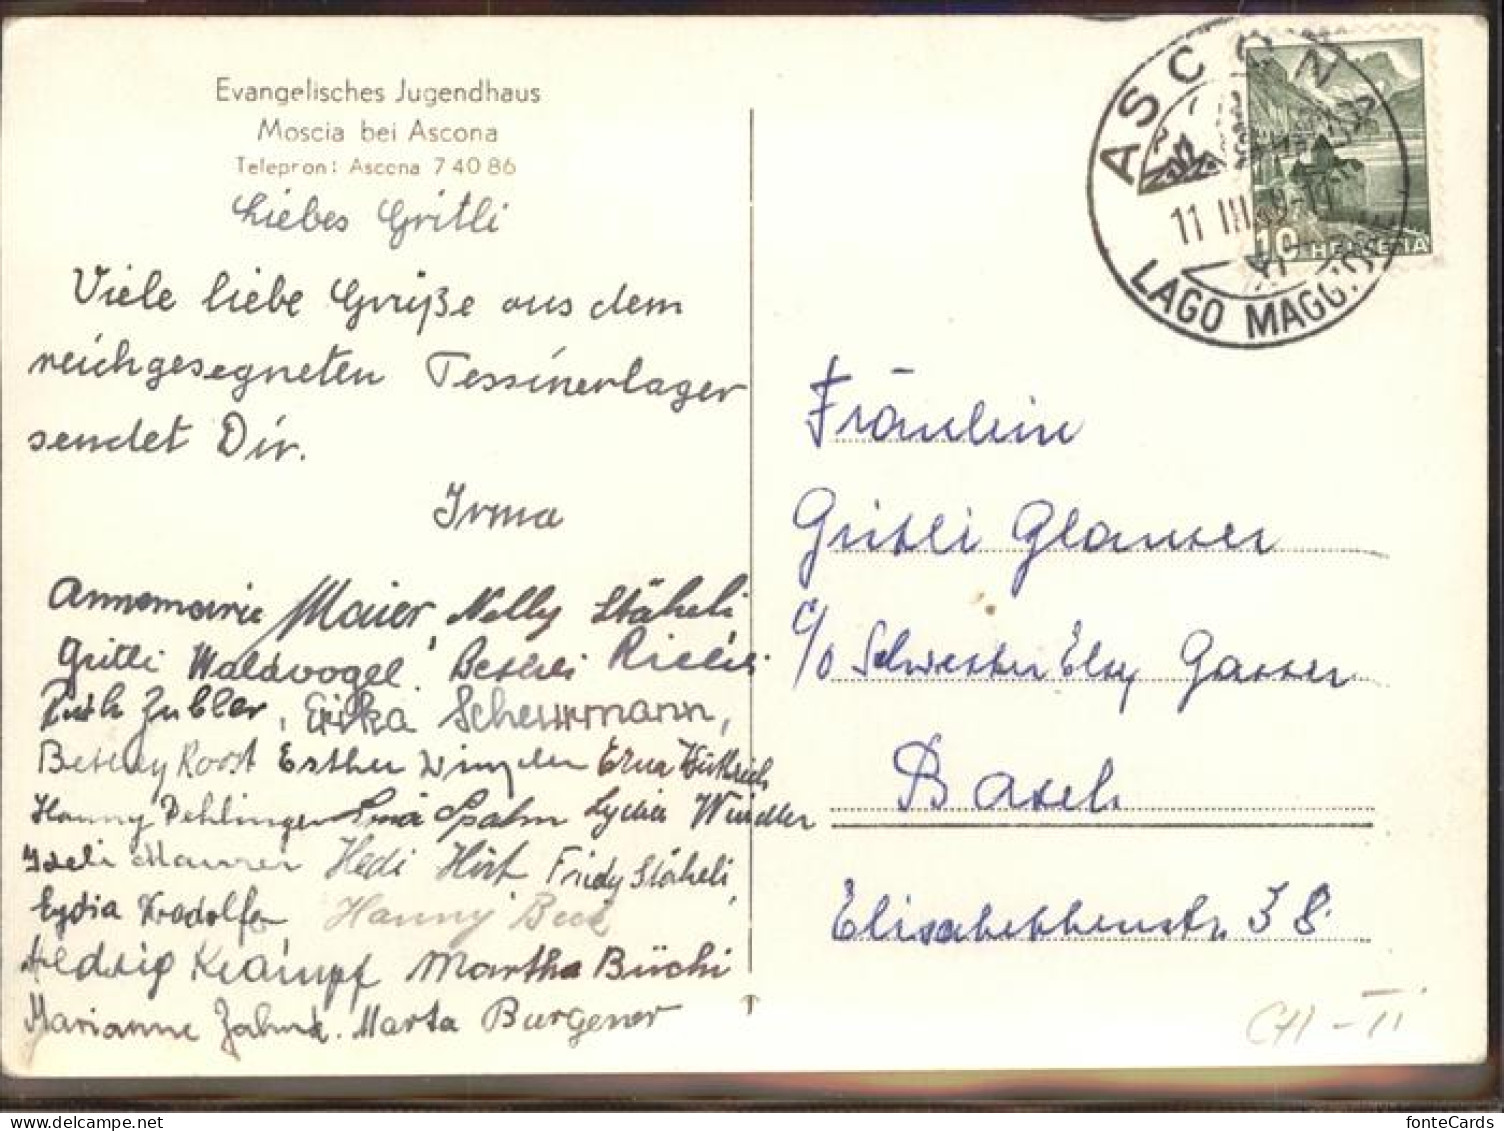 Evangelisches Jugendhaus
Moscia bei Ascona
Telephon: Ascona 7 40 86
Liebes Gritli
Viele liebe Grüße aus dem
reichgesegneten Tessinerlager
sendet Dir.
Irma
Annemarie Maier, Nelly Stäheli
Gritli Waldvogel. Bethli
Ruth Zubler, Erika Scheurmann,
Bethly Roost Esther Erna Wüthrich
Hanny Spahn Lydia Windler
Maurer Hedi Hirt Fridy Stäheli,
Lydia Kradolfer Hanny Beck
Hedwig Krampf Martha Büchi
Marianne Marta Burgener
ASCONA
11 III
LAGO MAGG.
10 HELVETIA
Fräulein
Gritli Glauser
c/o Schwester Elsy Gasser
Basel
Elisabethenstr. 38
CH - TI
fonteCards